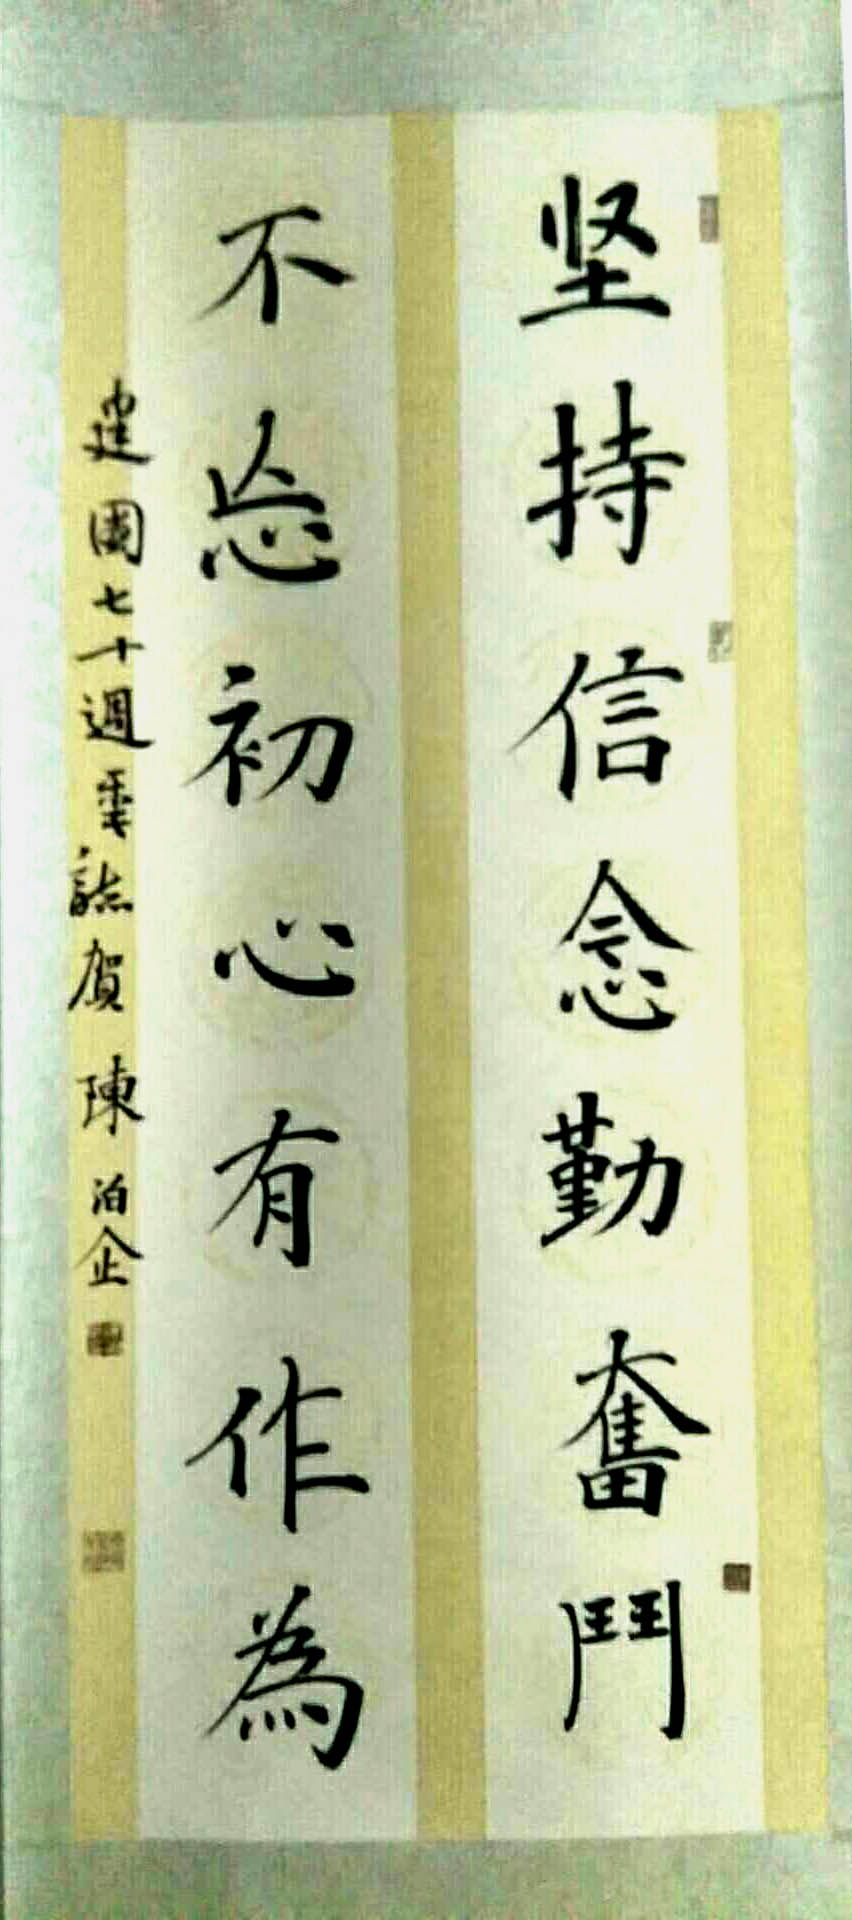 坚持信念勤奮鬥
不忘初心有作為
建國七十週年誌賀 陳泊企